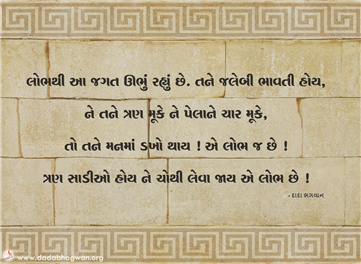 લોભથી આ જગત ઊભું રહ્યું છે. તને જલેબી ભાવતી હોય,
ને તને ત્રણ મૂકે ને પેલાને ચાર મૂકે,
તો તને મનમાં ડખો થાય ! એ લોભ જ છે !
ત્રણ સાડીઓ હોય ને ચોથી લેવા જાય એ લોભ છે !
- દાદા ભગવાન
www.dadabhagwan.org